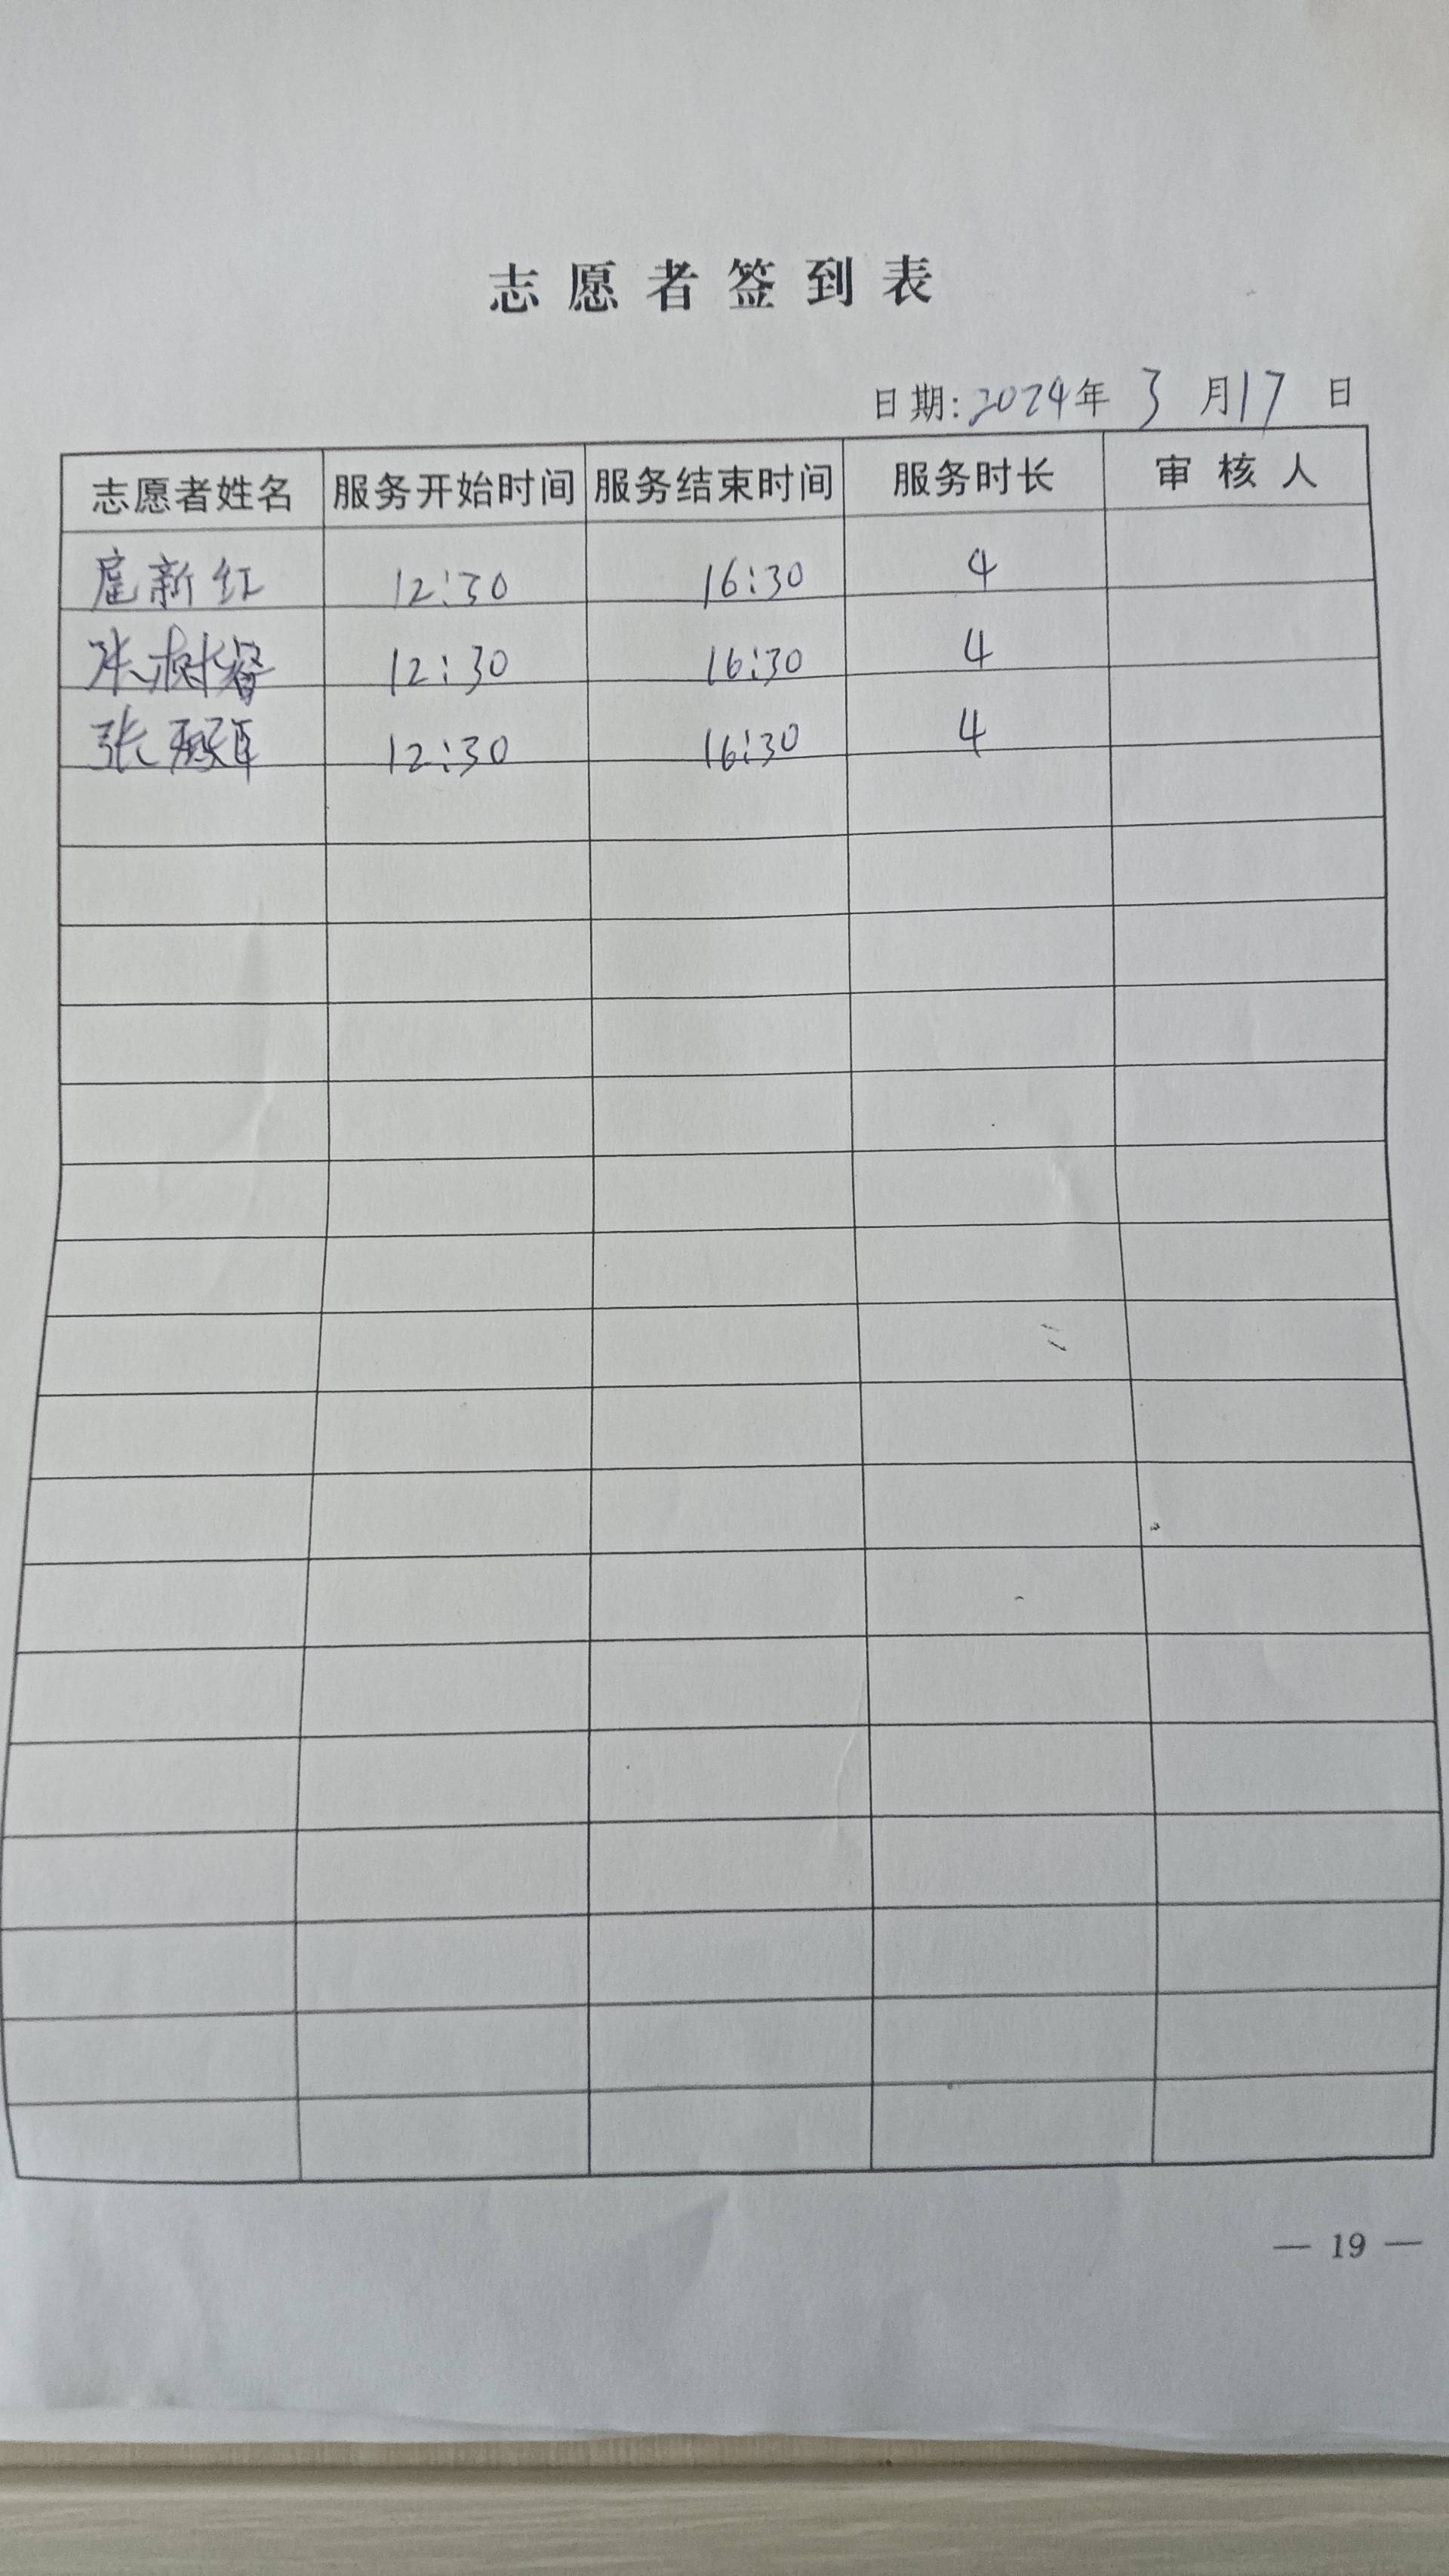 志愿者签到表
日期:2024年 3 月17 日
志愿者姓名 服务开始时间 服务结束时间 服务时长 审核人
扈新红 12:30 16:30 4
张树睿 12:30 16:30 4
张 12:30 16:30 4
— 19 —